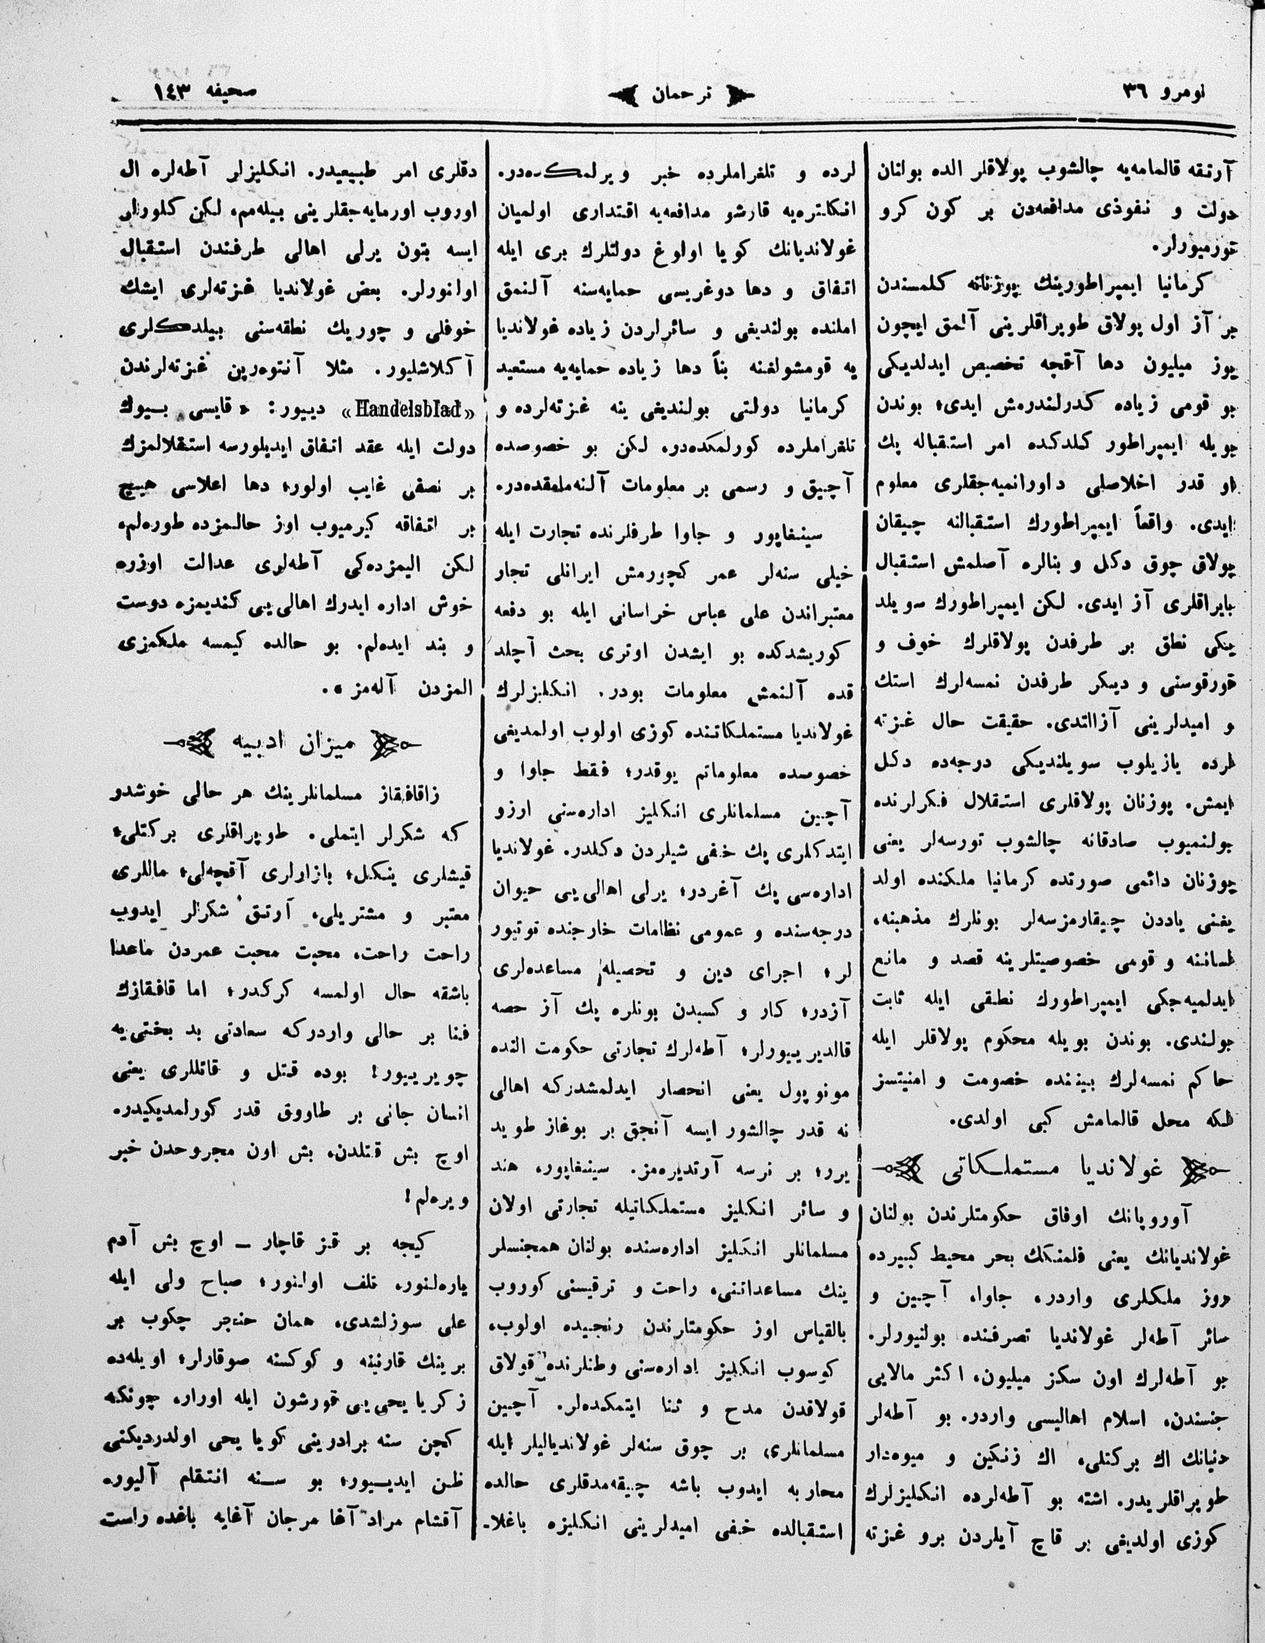 نومرو ٣٦
ترجمان
صحيفه ١٤٣
آرتقه قالمامه‌يه چالشوب پولاقلر الده بولنان
دولت و نفوذى مدافعه‌دن بر كون كرو
تورميورلر.
كرمانيا ايمپراطورينك پوزنانه كلمسندن
بر آز اول پولاق طوپراقلرينى آلمق ايچون
يوز ميليون دها آقچه تخصيص ايدلديكى
بو قومى زياده كدرلندرمش ايدى؛ بوندن
بويله ايمپراطور كلدكده امر استقباله پك
او قدر اخلاصلى داورانميه‌جقلرى معلوم
ايدى. واقعاً ايمپراطورك استقبالنه چيقان
پولاق چوق دكل و بنالره آصلمش استقبال
بايراقلرى آز ايدى. لكن ايمپراطورك سويلد
يكى نطق بر طرفدن پولاقلرك خوف و
قورقوسنى و ديكر طرفدن نمسه‌لرك استك
و اميدلرينى آزالتدى. حقيقت حال غزته
لرده يازيلوب سويلنديكى درجه‌ده دكل
ايمش. پوزنان پولاقلرى استقلال فكرلرنده
بولنميوب صادقانه چالشوب تورسه‌لر يعنى
پوزنان دائمى صورتده كرمانيا ملكنده اولد
يغنى ياددن چيقارمزسه‌لر بونلرك مذهبنه،
لساننه و قومى خصوصيتلرينه قصد و مانع
ايدلميه‌جكى ايمپراطورك نطقى ايله ثابت
بولندى. بوندن بويله محكوم پولاقلر ايله
حاكم نمسه‌لرك بيننده خصومت و امنيتسز
لكه محل قالمامش كبى اولدى.
غولانديا مستملكاتى
آوروپانك اوفاق حكومتلرندن بولنان
غولانديانك يعنى فلمنكك بحر محيط كبيرده
دروز ملكلرى واردر، جاوا، آچين و
سائر آطه‌لر غولانديا تصرفنده بولنيورلر.
بو آطه‌لرك اون سكز ميليون، اكثر مالايى
جنسندن، اسلام اهاليسى واردر. بو آطه‌لر
دنيانك اك بركتلى، اك زنكين و ميوه‌دار
طوپراقلريدر. اشته بو آطه‌لرده انكليزلرك
كوزى اولديغى بر قاچ آيلردن برو غزته
لرده و تلغراملرده خبر ويرلمكده‌در.
انكلتره‌يه قارشو مدافعه‌يه اقتدارى اولميان
غولانديانك كويا اولوغ دولتلرك برى ايله
اتفاق و دها دوغريسى حمايه‌سنه آلنمق
املنده بولنديغى و سائرلردن زياده غولانديا
يه قومشولغنه بناً دها زياده حمايه‌يه مستعيد
كرمانيا دولتى بولنديغى ينه غزته‌لرده و
تلغراملرده كورلمكده‌در. لكن بو خصوصده
آچيق و رسمى بر معلومات آلنه‌ملمقده‌در.
سينغاپور و جاوا طرفلرنده تجارت ايله
خيلى سنه‌لر عمر كچورمش ايرانلى تجار
معتبراندن على عباس خراسانى ايله بو دفعه
كوريشدكده بو ايشدن اوترى بحث آچلد
قده آلنمش معلومات بودر. انكليزلرك
غولانديا مستملكاتنده كوزى اولوب اولمديغى
خصوصده معلوماتم يوقدر؛ فقط جاوا و
آچين مسلمانلرى انكليز اداره‌سنى ارزو
ايتدكلرى پك خفى شيلردن دكلدر. غولانديا
اداره‌سى پك آغردر؛ يرلى اهالى‌يى حيوان
درجه‌سنده و عمومى نظامات خارجنده توتيور
لر؛ اجراى دين و تحصيله مساعده‌لرى
آزدر؛ كار و كسبدن بونلره پك آز حصه
قالديرييورلر؛ آطه‌لرك تجارتى حكومت النده
مونوپول يعنى انحصار ايدلمشدركه اهالى
نه قدر چالشور ايسه آنجق بر بوغاز طويد
يرر؛ بر نرسه آرتديره‌مز. سينغاپور، هند
و سائر انكليز مستملكاتيله تجارتى اولان
مسلمانلر انكليز اداره‌سنده بولنان همجنسلر
ينك مساعداتنى، راحت و ترقيسنى كوروب
بالقياس اوز حكومتلرندن رنجيده اولوب،
كوسوب انكليز اداره‌سنى وطنلرنده قولاق
قولاقدن مدح و ثنا ايتمكده‌لر. آچين
مسلمانلرى بر چوق سنه‌لر غولانديالیلر ايله
محاربه ايدوب باشه چيقه‌مدقلرى حالده
استقبالده خفى اميدلرينى انكليزه باغلا۔
دقلرى امر طبيعيدر. انكليزلر آطه‌لره ال
اوروب اورمايه‌جقلرينى بيله‌مم، لكن كلورلر
ايسه بتون يرلى اهالى طرفندن استقبال
اولنورلر. بعض غولانديا غزته‌لرى ايشك
خوفلى و چوريك نطقه‌سنى بيلدكلرى
آكلاشليور. مثلا آنتوه‌رپن غزته‌لرندن
«Handelsblad» دييور: «قايسى بيوك
دولت ايله عقد اتفاق ايديلورسه استقلالمزك
بر نصفى غايب اولور؛ دها اعلاسى هيچ
بر اتفاقه كيرميوب اوز حالمزده طوره‌لم،
لكن اليمزده‌كى آطه‌لرى عدالت اوزره
خوش اداره ايدرك اهالى‌يى كنديمزه دوست
و بند ايده‌لم. بو حالده كيمسه ملكمزى
المزدن آله‌مز».
ميزان ادبيه
زاقافقاز مسلمانلرينك هر حالى خوشدر
كه شكرلر ايتملى. طوپراقلرى بركتلى،
قيشلرى ينكل؛ بازارلرى آقچه‌لى؛ ماللرى
معتبر و مشتريلى، آرتق شكرلر ايدوب
راحت راحت، محبت محبت عمردن ماعدا
باشقه حال اولمسه كركدر؛ اما قافقازك
فنا بر حالى واردركه سعادتى بد بختى‌يه
چويرييور! بوده قتل و قاتللرى يعنى
انسان جانى بر طاووق قدر كورلمديكيدر.
اوچ بش قتلدن، بش اون مجروحدن خبر
ويره‌لم!
كيجه بر قز قاچار — اوچ بش آدم
ياره‌لنور، تلف اولنور؛ صباح ولى ايله
على سوزلشدى، همان خنجر چكوب بر
برينك قارنينه و كوكسنه صوقارلر؛ اويله‌ده
زكريا يحيى‌يى قورشون ايله اورار، چونكه
كچن سنه برادرينى كويا يحيى اولدرديكنى
ظن ايدييور؛ بو سنه انتقام آليور.
آقشام مراد آغا مرجان آغايه باغده راست